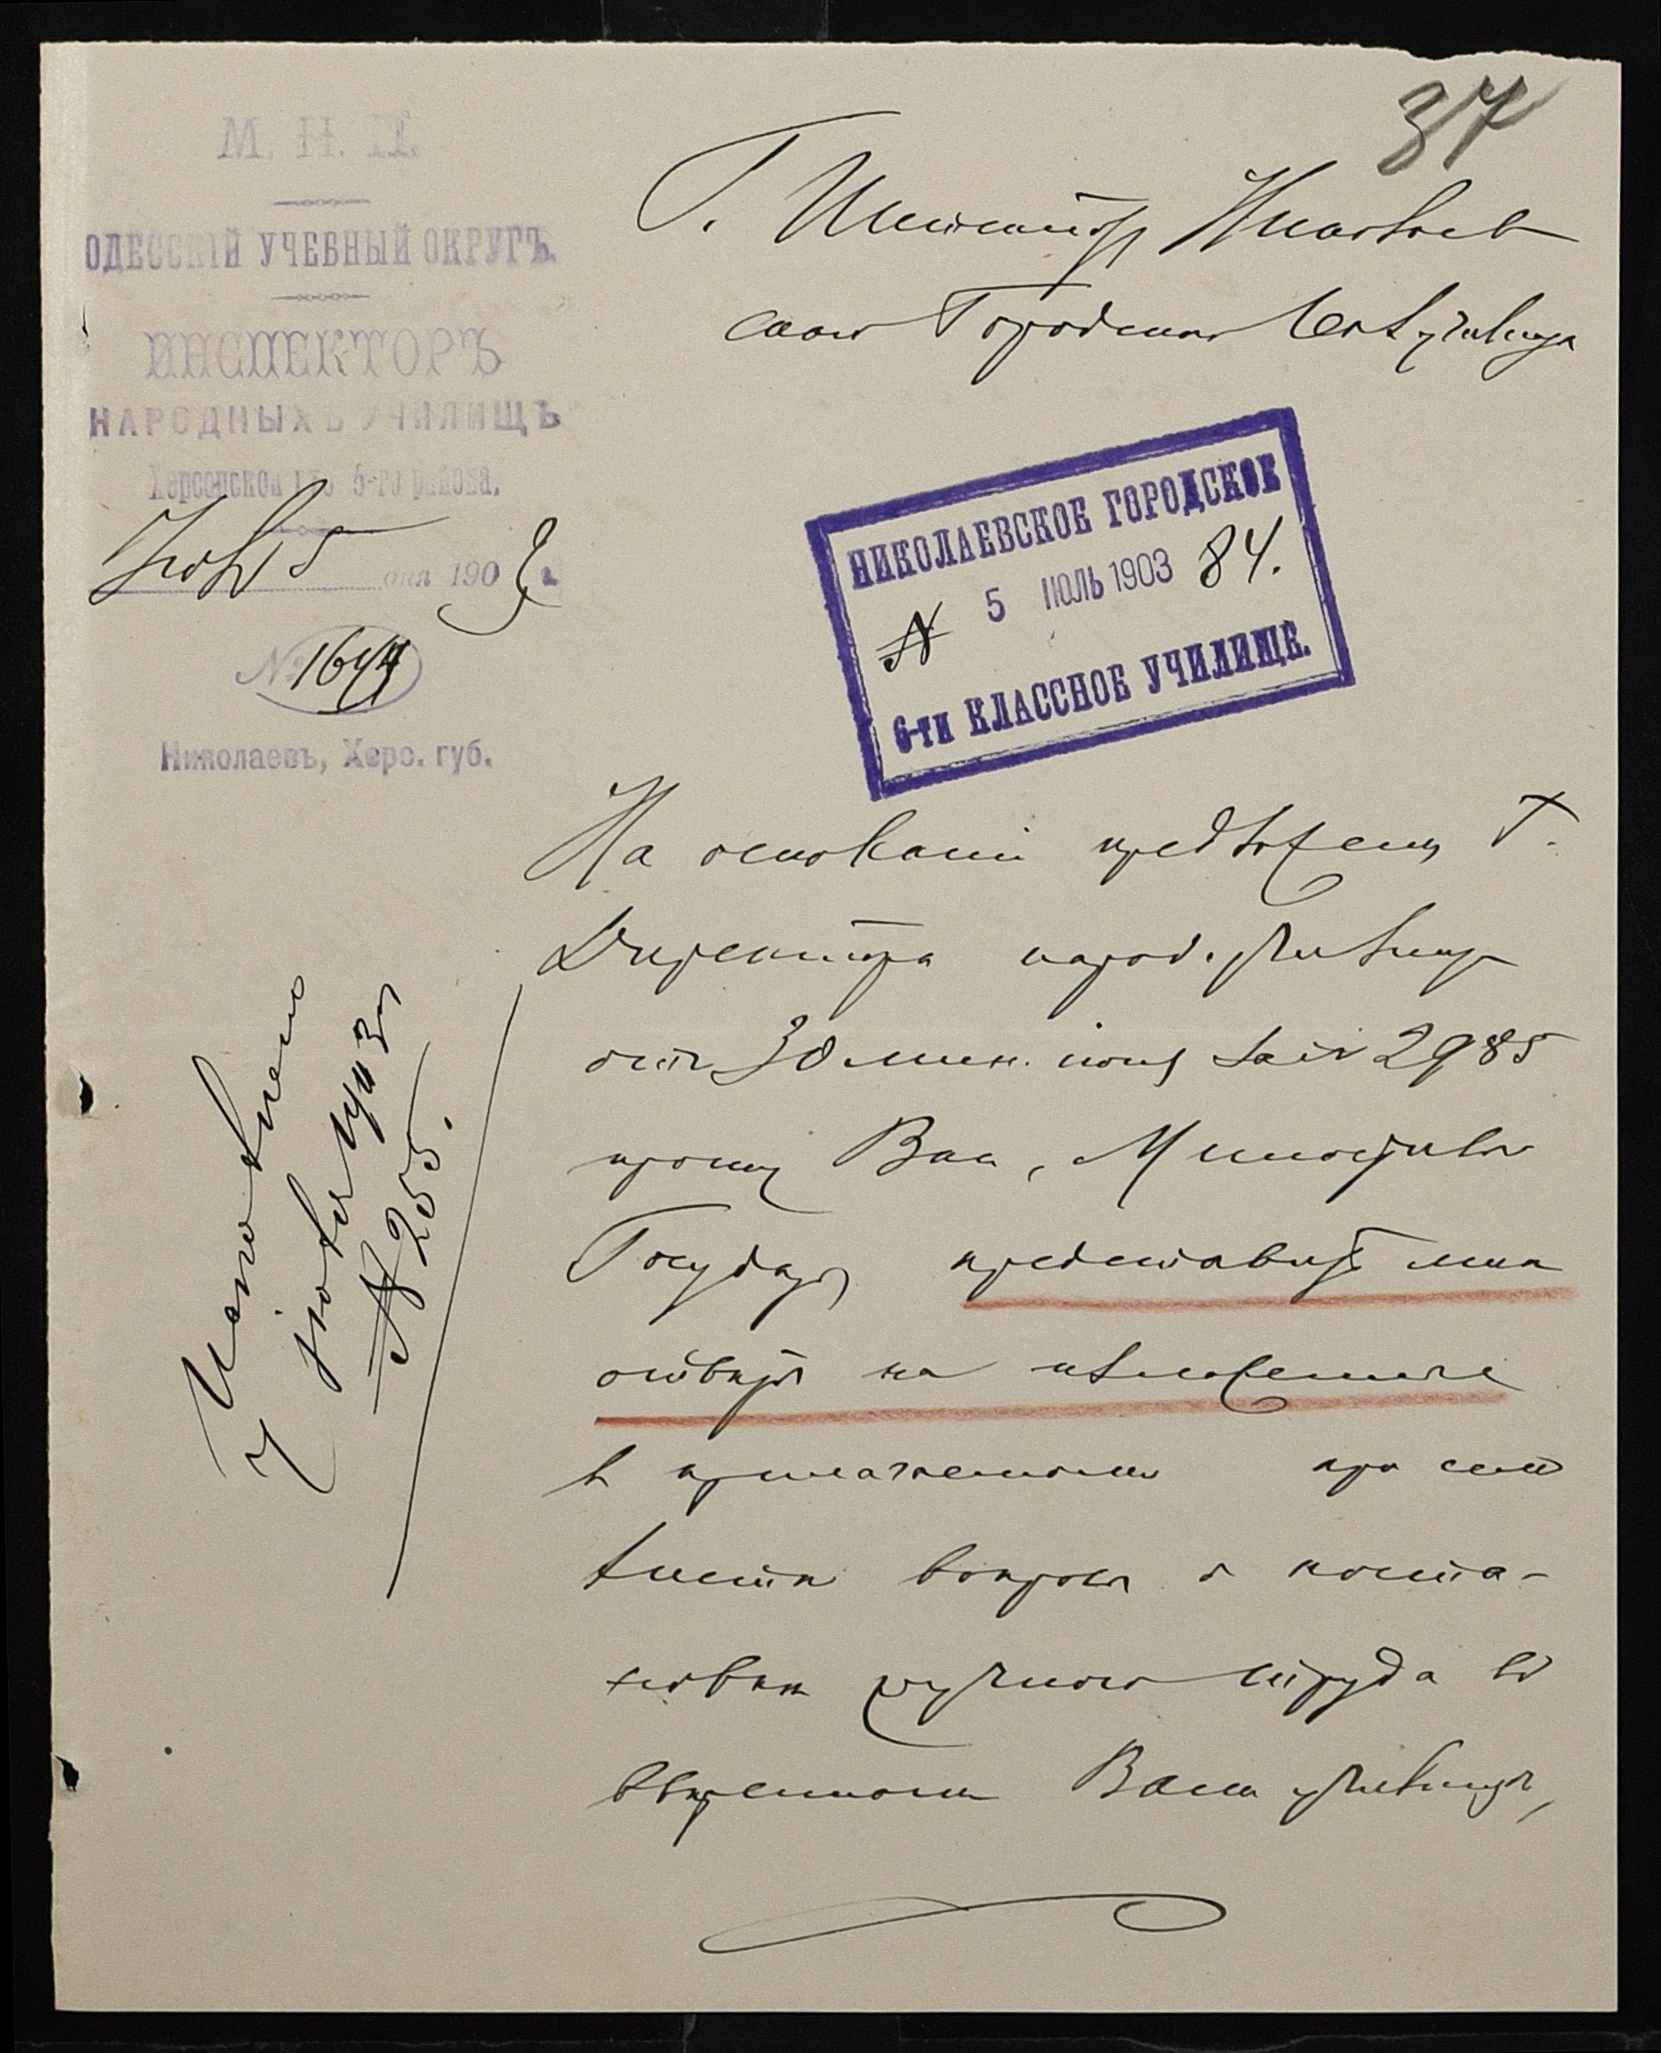 37
М. Н. П.
ОДЕССКІЙ УЧЕБНЫЙ ОКРУГЪ.
ИНСПЕКТОРЪ
НАРОДНЫХЪ УЧИЛИЩЪ
Херсонской губ. 5-го района.
Іюля 5 дня 1903 г.
№ 1644
Николаевъ, Херс. губ.
Г. Инспектору Николаев
скаго Городского 6кл училища
НИКОЛАЕВСКОЕ ГОРОДСКОЕ
5 ІЮЛЬ 1903
№ 84.
6-ТИ КЛАССНОЕ УЧИЛИЩЕ.
На основаніи предложенія Г.
Директора народ. училищъ
отъ 30 мин. іюня за № 2985
прошу Васъ, Милостивый
Государь, представить мнѣ
отвѣтъ на изложенные
въ прилагаемомъ при семъ
листѣ вопросы о поста-
новкѣ ручного труда въ
ввѣренномъ Вамъ училищѣ,
Исполнено
іюля 1903
№ 255.